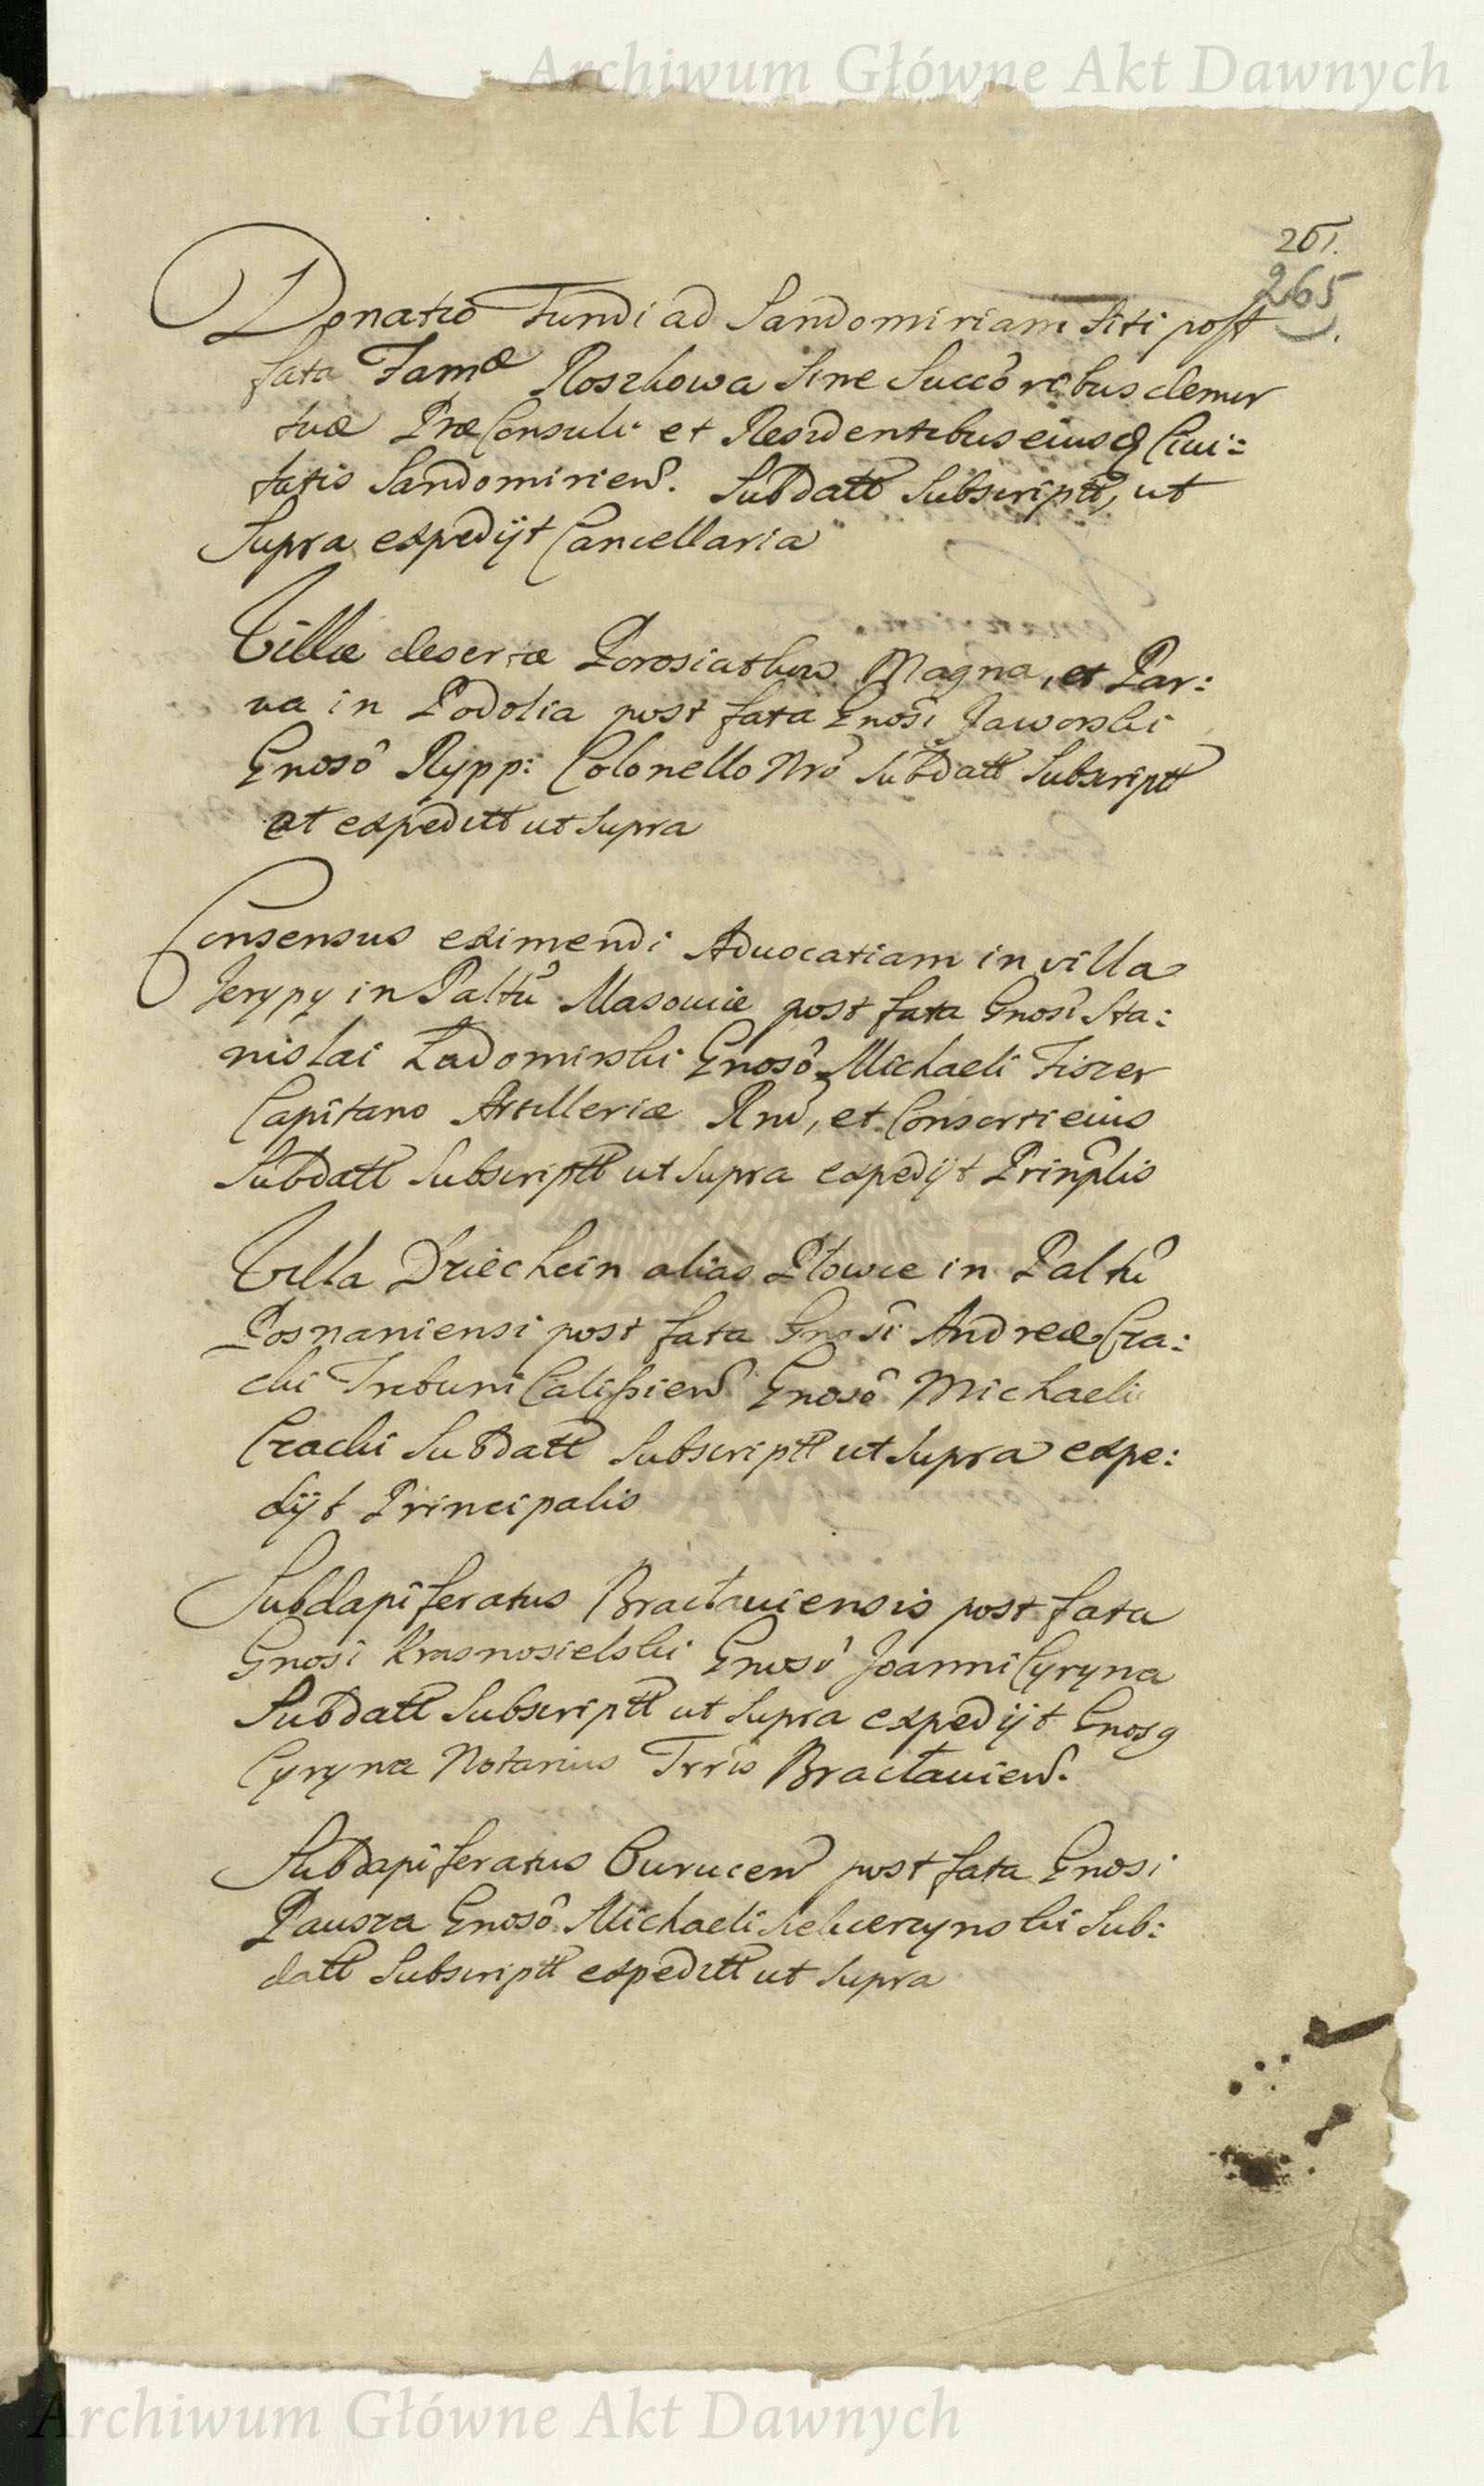 Archiwum Główne Akt Dawnych
261.
265
Donatio Fundi ad Sandomiriam siti post
fata Famæ Roszkowa sine Succôribus demor
tuæ PræConsuli et Residentibus eiusq Ciui:
tatis Sandomirien. SubDatt Subscriptt, ut
Supra expedijt Cancellaria
Villæ desertæ Porosiatkow Magna, et Par:
ua in Podolia post fata Gnosi Jaworski
Gnosô Rypp: Colonello Nro SubDatt Subscriptt
et expeditt ut Supra
Consensus eximendi Aduocatiam in villa
Jerypy in Paltu Masouiæ post fata Gnosi Sta:
nislai Ladomirski Gnosô Michaeli Fiszer
Capitano Artilleriæ Rni, et Consorti eius
SubDatt Subscriptt ut Supra expedijt Prinplis
Villa Driechcin alias Plowce in Paltu
Posnaniensi post fata Gnosi Andreæ Cza:
cki Tribuni Calissien Gnosô Michaeli
Czacki SubDatt Subscriptt ut Supra expe:
dijt Principalis
Subdapiferatus Bracłauiensis post fata
Gnosi Krasnosielski Gnosô Joanni Cyryna
SubDatt Subscriptt ut Supra expedijt Gnosq
Cyryna Notarius Trris Bracłauien.
SubDapiferatus Owrucen post fata Gnosi
Pausza Gnosô Michaeli Sub:
datt Subscriptt expeditt ut Supra
Archiwum Główne Akt Dawnych